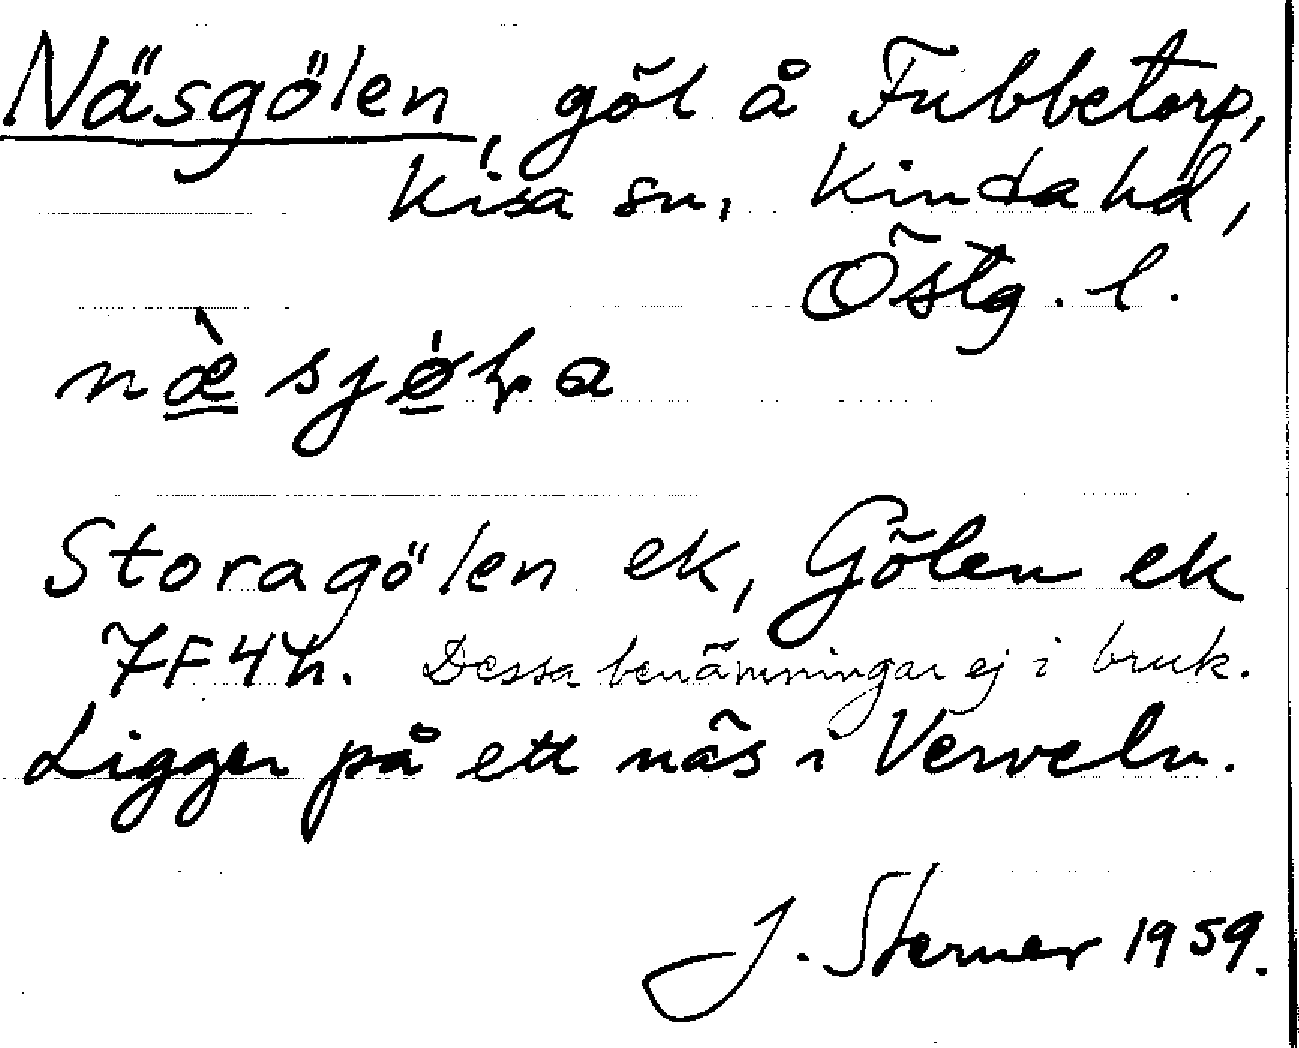 Näsgölen, göl å Fubbetorp,
Kisa sn, Kinda hd,
Östg. l.
Storagölen ek, Gölen ek
7F4h. Dessa benämningar ej i bruk.
Ligger på ett näs i Verveln.
J. Sterner 1959.